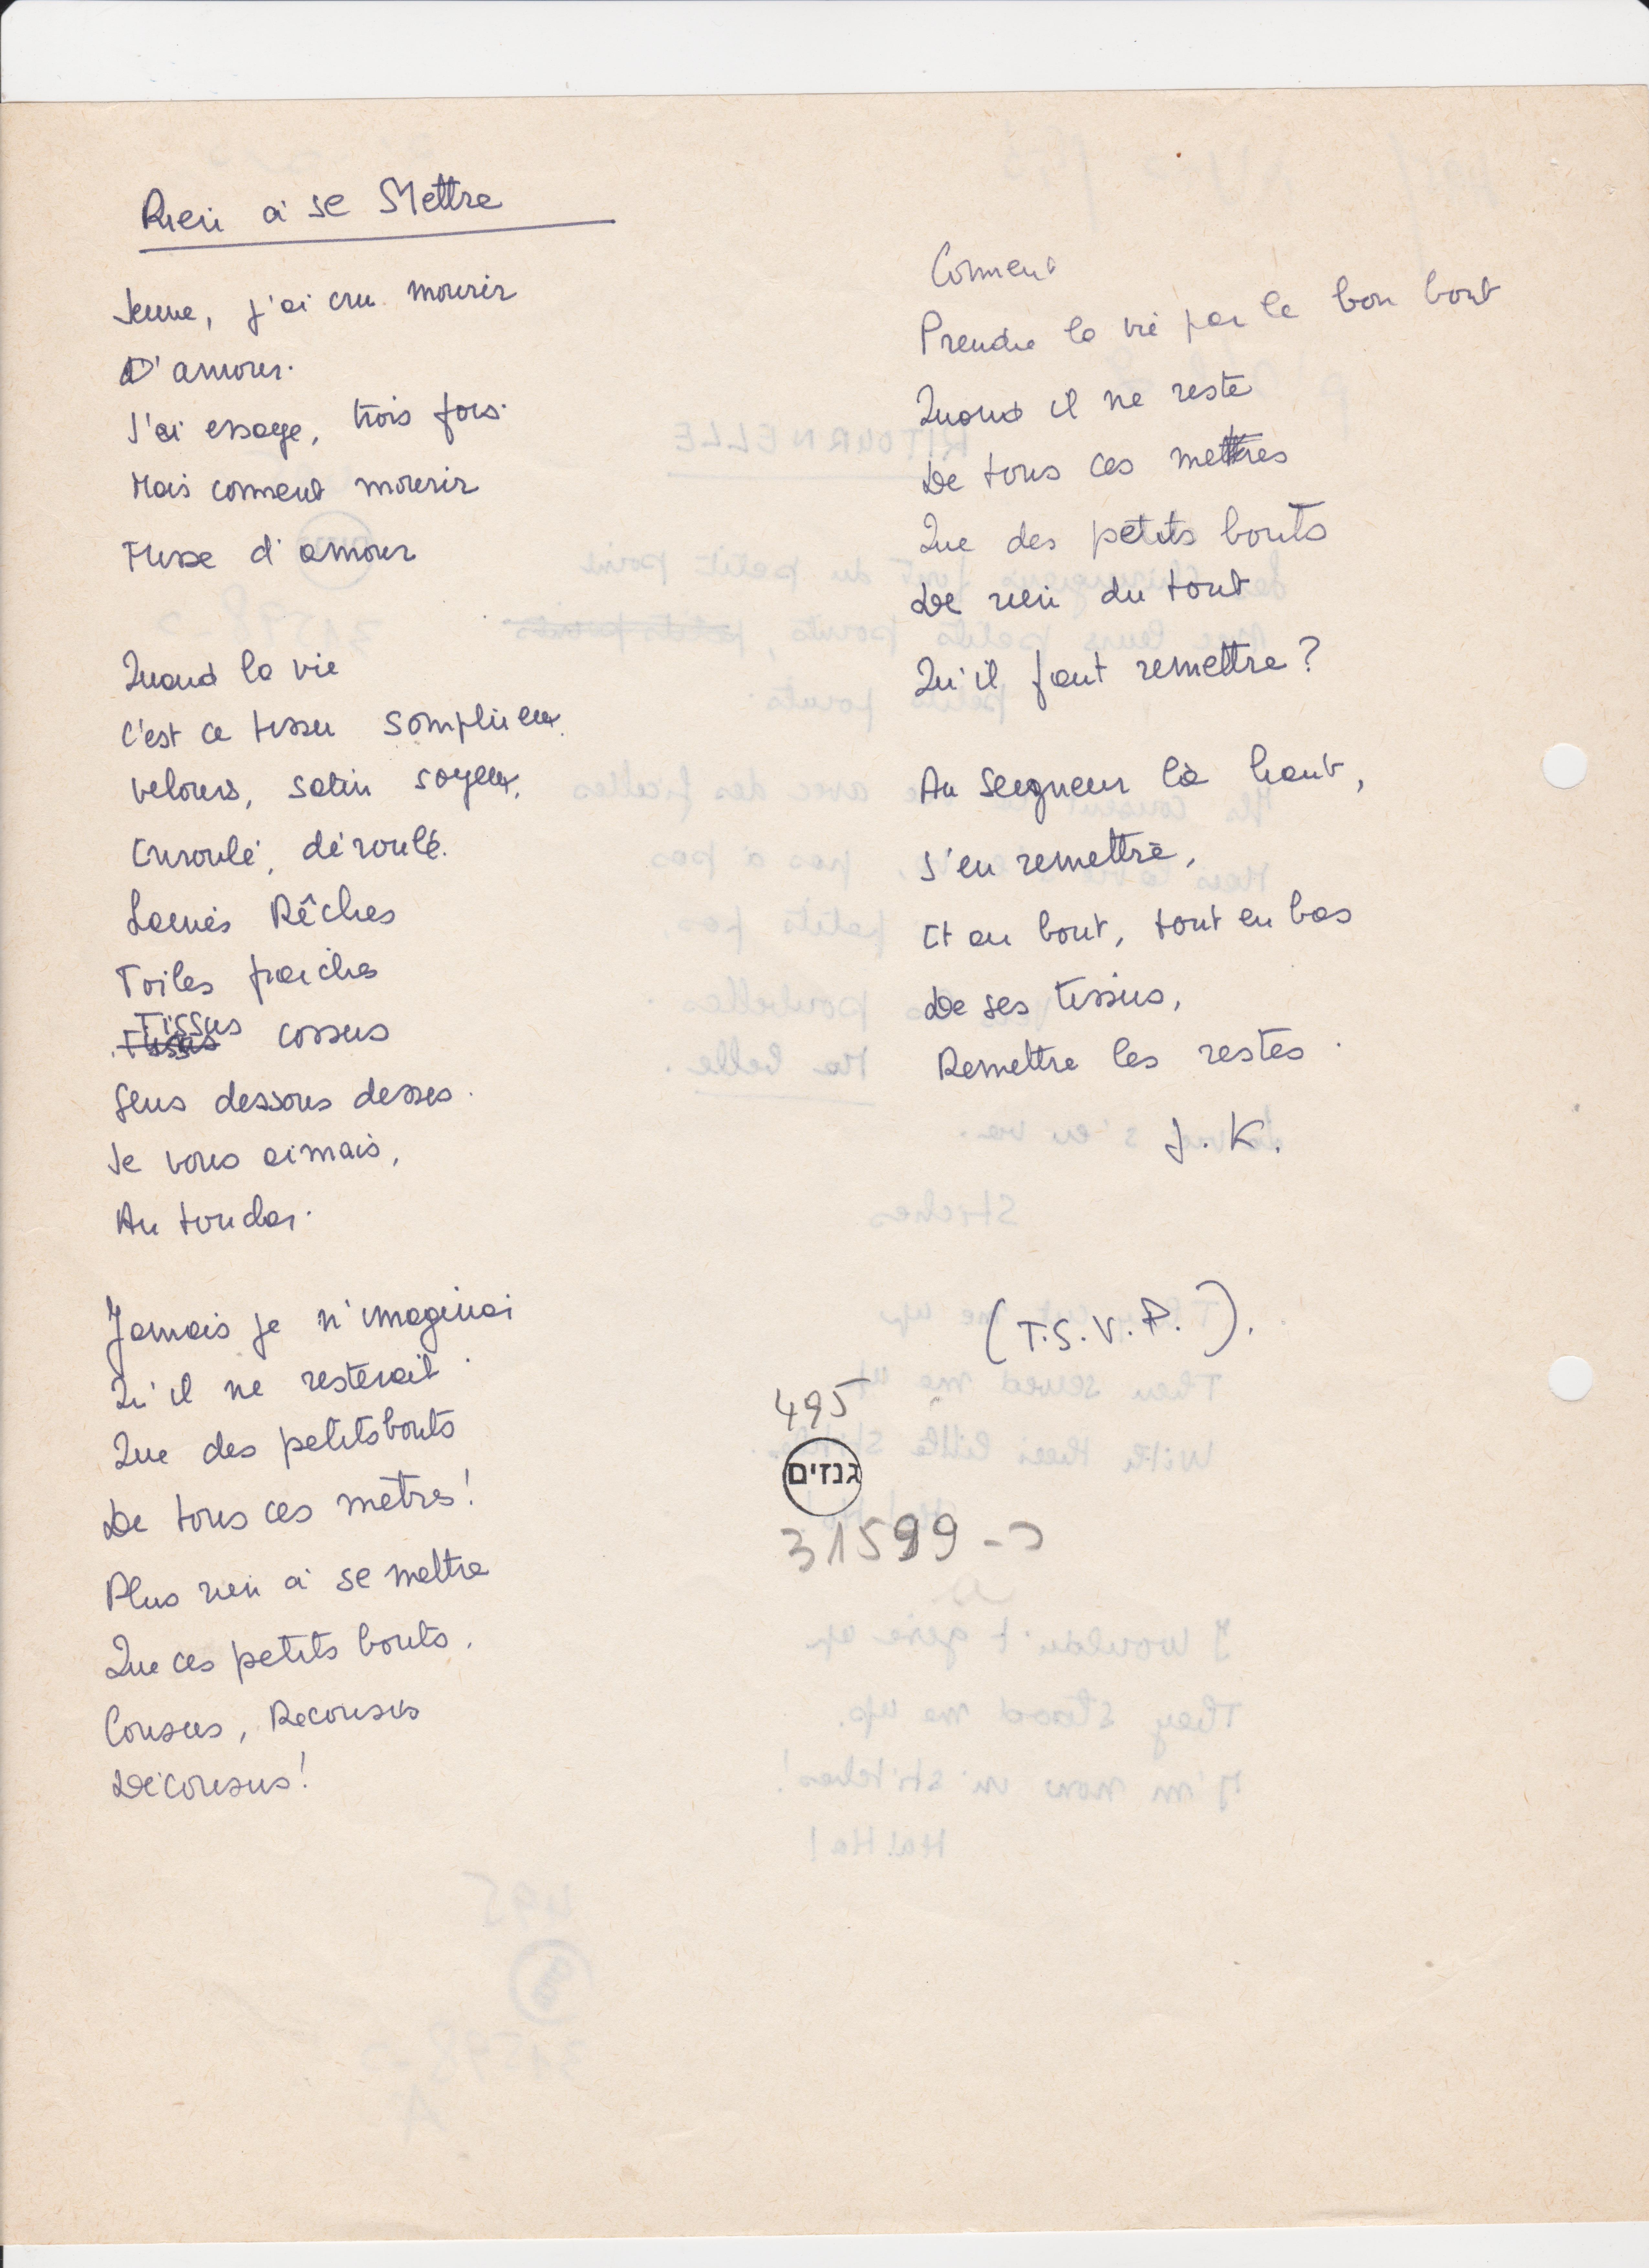 Rien à se Mettre
Jeune, j'ai cru mourir
D'amour.
J'ai essaye, trois fois.
Mais comment mourir
Tusse d'amour
Quand la vie
C'est ce tissu somptueux
velours, satin soyeux,
Enroulé, déroulé.
Lamés Rêches
Toiles fraiches
Tissus cossus
Sens dessous desses.
Je vous aimais,
Au toucher.
Jamais je n'imaginai
Qu'il ne resterait
Que des petits bouts
De tous ces metres!
Plus rien à se mettre
Que ces petits bouts.
Cousus, Recousus
Décousus!
Comment
Prendre la vie par le bon bout
Quand il ne reste
De tous ces metres
Que des petits bouts
De rien du tout
Qu'il faut remettre?
Au Seigneur là haut,
S'en remettre,
Et au bout, tout en bas
De ses tissus,
Remettre les restes.
J.K.
(T.S.V.P.).
495
גנזים
31599-כ